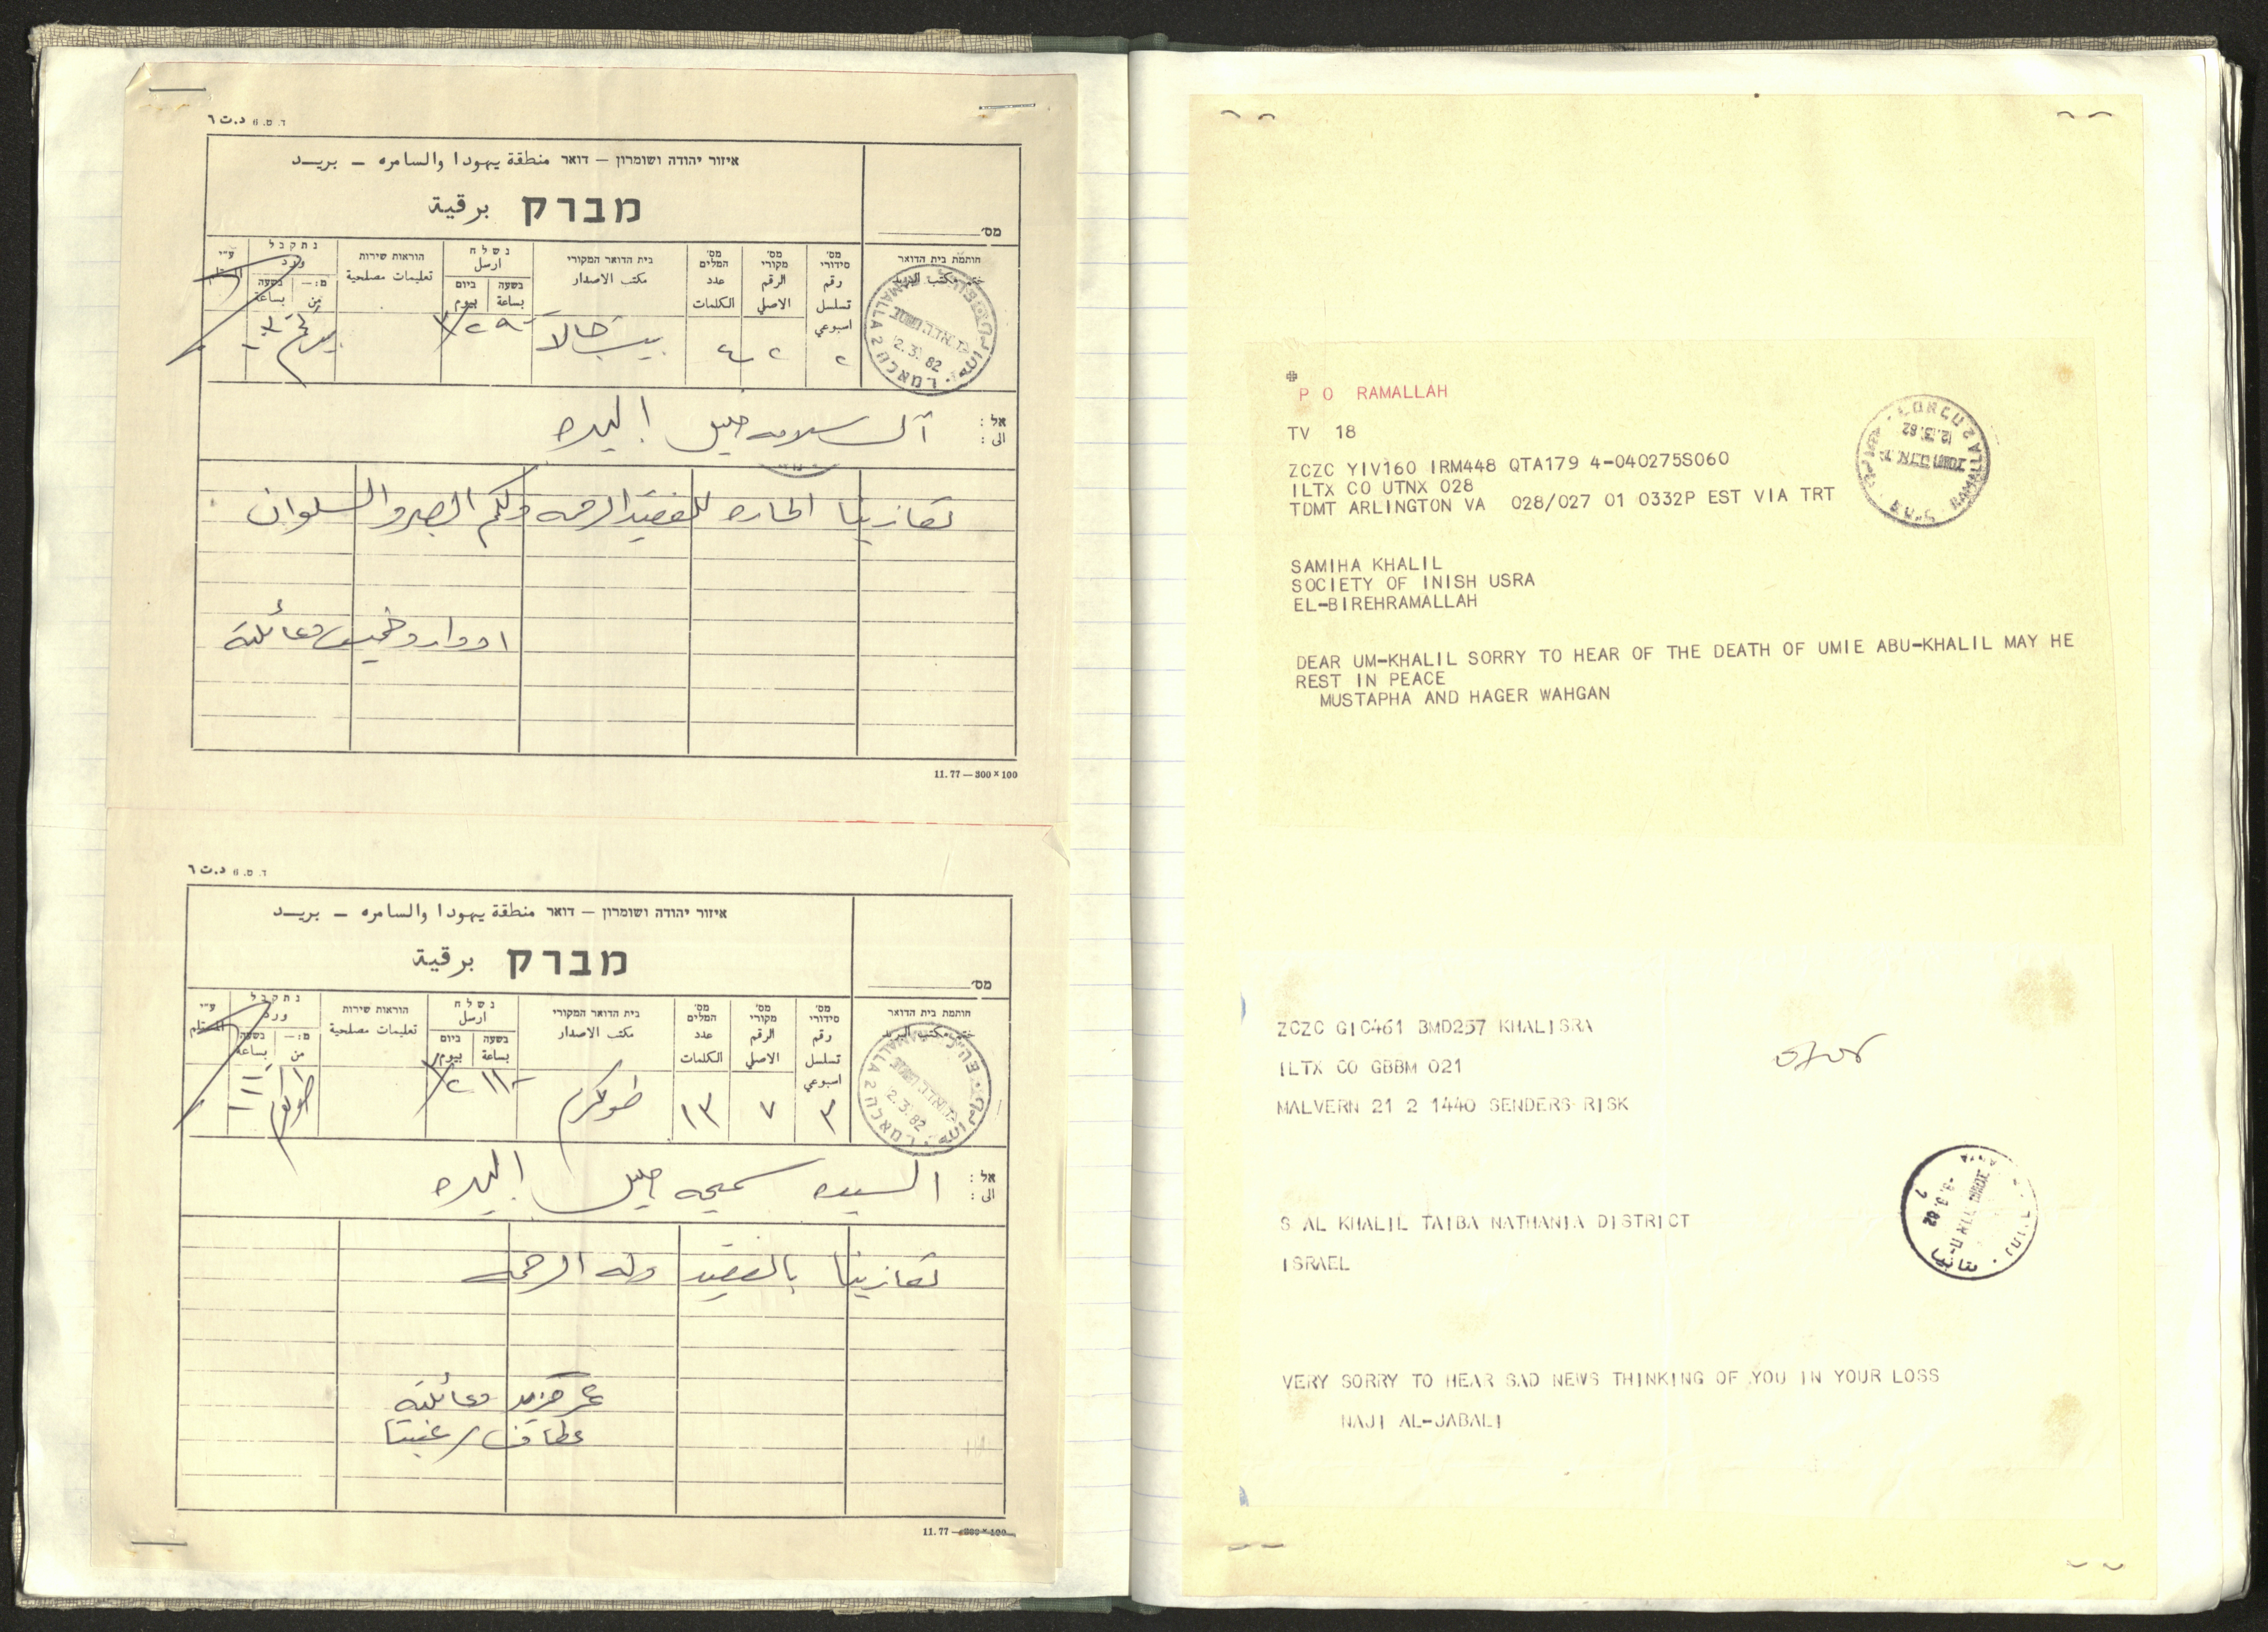 ד. ט. 6 د.ت ٦
איזור יהודה ושומרון – דואר منطقة يهودا والسامره – بريـد
מברק برقية
מס'
חותמת בית הדואר
ختم مكتب البريد
מס' סידורי
رقم تسلسل اسبوعي
מס' מקורי
الرقم الاصلي
מס' המלים
عدد الكلمات
בית הדואר המקורי
مكتب الاصدار
נשלח
ارسل
בשעה
بساعة
ביום
بيوم
הוראות שירות
تعليمات مصلحية
נתקבל
ورد
מ:—
من
בשעה
بساعة
ע"י
٢
٢
بيت جالا
RAMALLAH 2
2.3.82
אל :
الى :
آل سلامه خليل البيره
تعازينا الحاره للفقيد الرحمه ولكم الصبر والسلوان
ادوارد خميس وعائلته
11.77 — 300 × 100
ד. ט. 6 د.ت ٦
איזור יהודה ושומרון – דואר منطقة يهودا والسامره – بريـد
מברק برقية
מס'
חותמת בית הדואר
ختم مكتب البريد
מס' סידורי
رقم تسلسل اسبوعي
מס' מקורי
الرقم الاصلي
מס' המלים
عدد الكلمات
בית הדואר המקורי
مكتب الاصدار
נשלח
ارسل
בשעה
بساعة
ביום
بيوم
הוראות שירות
تعليمات مصلحية
נתקבל
ورد
מ:—
من
בשעה
بساعة
ע"י
٣
٧
١٣
طولكرم
RAMALLA 2
2.3.82
אל :
الى :
السيده سميحه خليل البيره
تعازينا بالفقيد وله الرحمه
وعائلته
11.77 — 300 × 100
P O RAMALLAH
TV 18
ZCZC YIV160 IRM448 QTA179 4-040275S060
ILTX CO UTNX 028
TDMT ARLINGTON VA 028/027 01 0332P EST VIA TRT
RAMALLAH 2
2.3.82
SAMIHA KHALIL
SOCIETY OF INISH USRA
EL-BIREHRAMALLAH
DEAR UM-KHALIL SORRY TO HEAR OF THE DEATH OF UMIE ABU-KHALIL MAY HE
REST IN PEACE
MUSTAPHA AND HAGER WAHGAN
ZCZC GIC461 BMD257 KHALISRA
ILTX CO GBBM 021
MALVERN 21 2 1440 SENDERS RISK
S AL KHALIL TAIBA NATHANIA DISTRICT
ISRAEL
-3.3.82
VERY SORRY TO HEAR SAD NEWS THINKING OF YOU IN YOUR LOSS
NAJI AL-JABALI